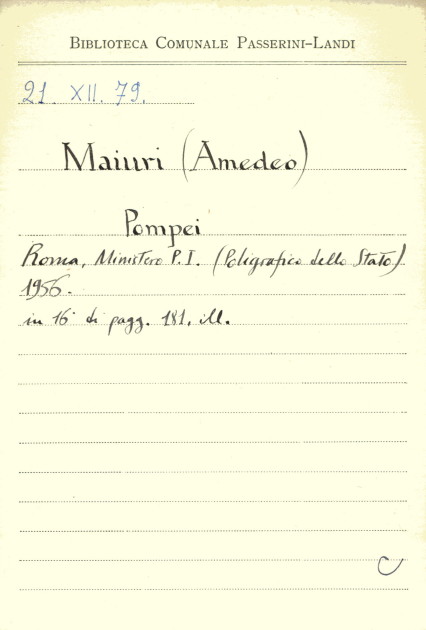 BIBLIOTECA COMUNALE PASSERINI-LANDI
21. XII. 79.
Maiuri (Amedeo)
Pompei
Roma, Ministero P. I. (Poligrafico dello Stato)
1956.
in 16° di pagg. 181, ill.
C